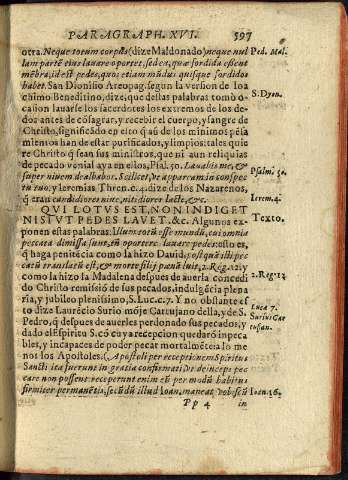 PARAGRAPH. XVI. 597
otra. Neque totum corpus (dize Maldonado) neque nul Ped. Mal.
lam partē eius lauare oportet, sed ea, quæ sordidū efficit
mēbra, id est pedes, quos etiam mūdus quisque sordidos
habet. San Dionisio Areopag. segun la version de Ioa S. Dyon.
chimo Beneditino, dize, que destas palabras tomò o-
casion lauarse los sacerdotes los extremos de los de-
dos antes de cōsagrar, y recebir el cuerpo, y sangre de
Christo, significādo en esto q̄ aū de los minimos pēsa
mientos han de estar purificados, y limpios: tales quie
re Christo q̄ sean sus ministros, que ni aun reliquias
de pecado venial aya en ellos, Psal. 50. Lauabis me, &
super niuem dealbabor. Scilicet, Vt appareā in conspec Psalm. 50.
tu tuo: y Ieremias Thren. c. 4. dize de los Nazarenos,
q̄ eran candidiores niue, nitidiores lacte, &c. Ierem. 4.
QVI LOTVS EST, NON INDIGET
NISI VT PEDES LAVET. &c. Algunos ex- Texto.
ponen estas palabras: Illum totū esse mundū, cui omnia
peccata dimissa sunt, eū oportere lauare pedes: esto es,
q̄ haga penitēcia como la hizo Dauid, post quā illi pec
catū translatū est, & morte filij pœnā luit, 2. Reg. 12. y
como la hizo la Madalena despues de auerla concedi 2. Reg. 12.
do Christo remissiō de sus pecados, indulgēcia plena
ria, y jubileo plenissimo, S. Luc. c. 7. Y no obstāte es-
to dize Laurēcio Surio mōje Cartujano della, y de S. Luca 7.
Pedro, q̄ despues de auerles perdonado sus pecados, y Surius Car
dado el Espiritu S. cō cuya recepcion quedarō impeca tusan.
bles, y incapaces de poder pecar mortalmēte: a lo me
nos los Apostoles. (Apostoli per receptionem Spiritus
Sancti ita fuerunt in gratia confirmati, Vt deinceps pec
care non possent: receperunt enim eū per modū habitus
firmiter permanētis, secūdū illud Ioan. maneat vobiscū Ioan. 16.
Pp 4 in